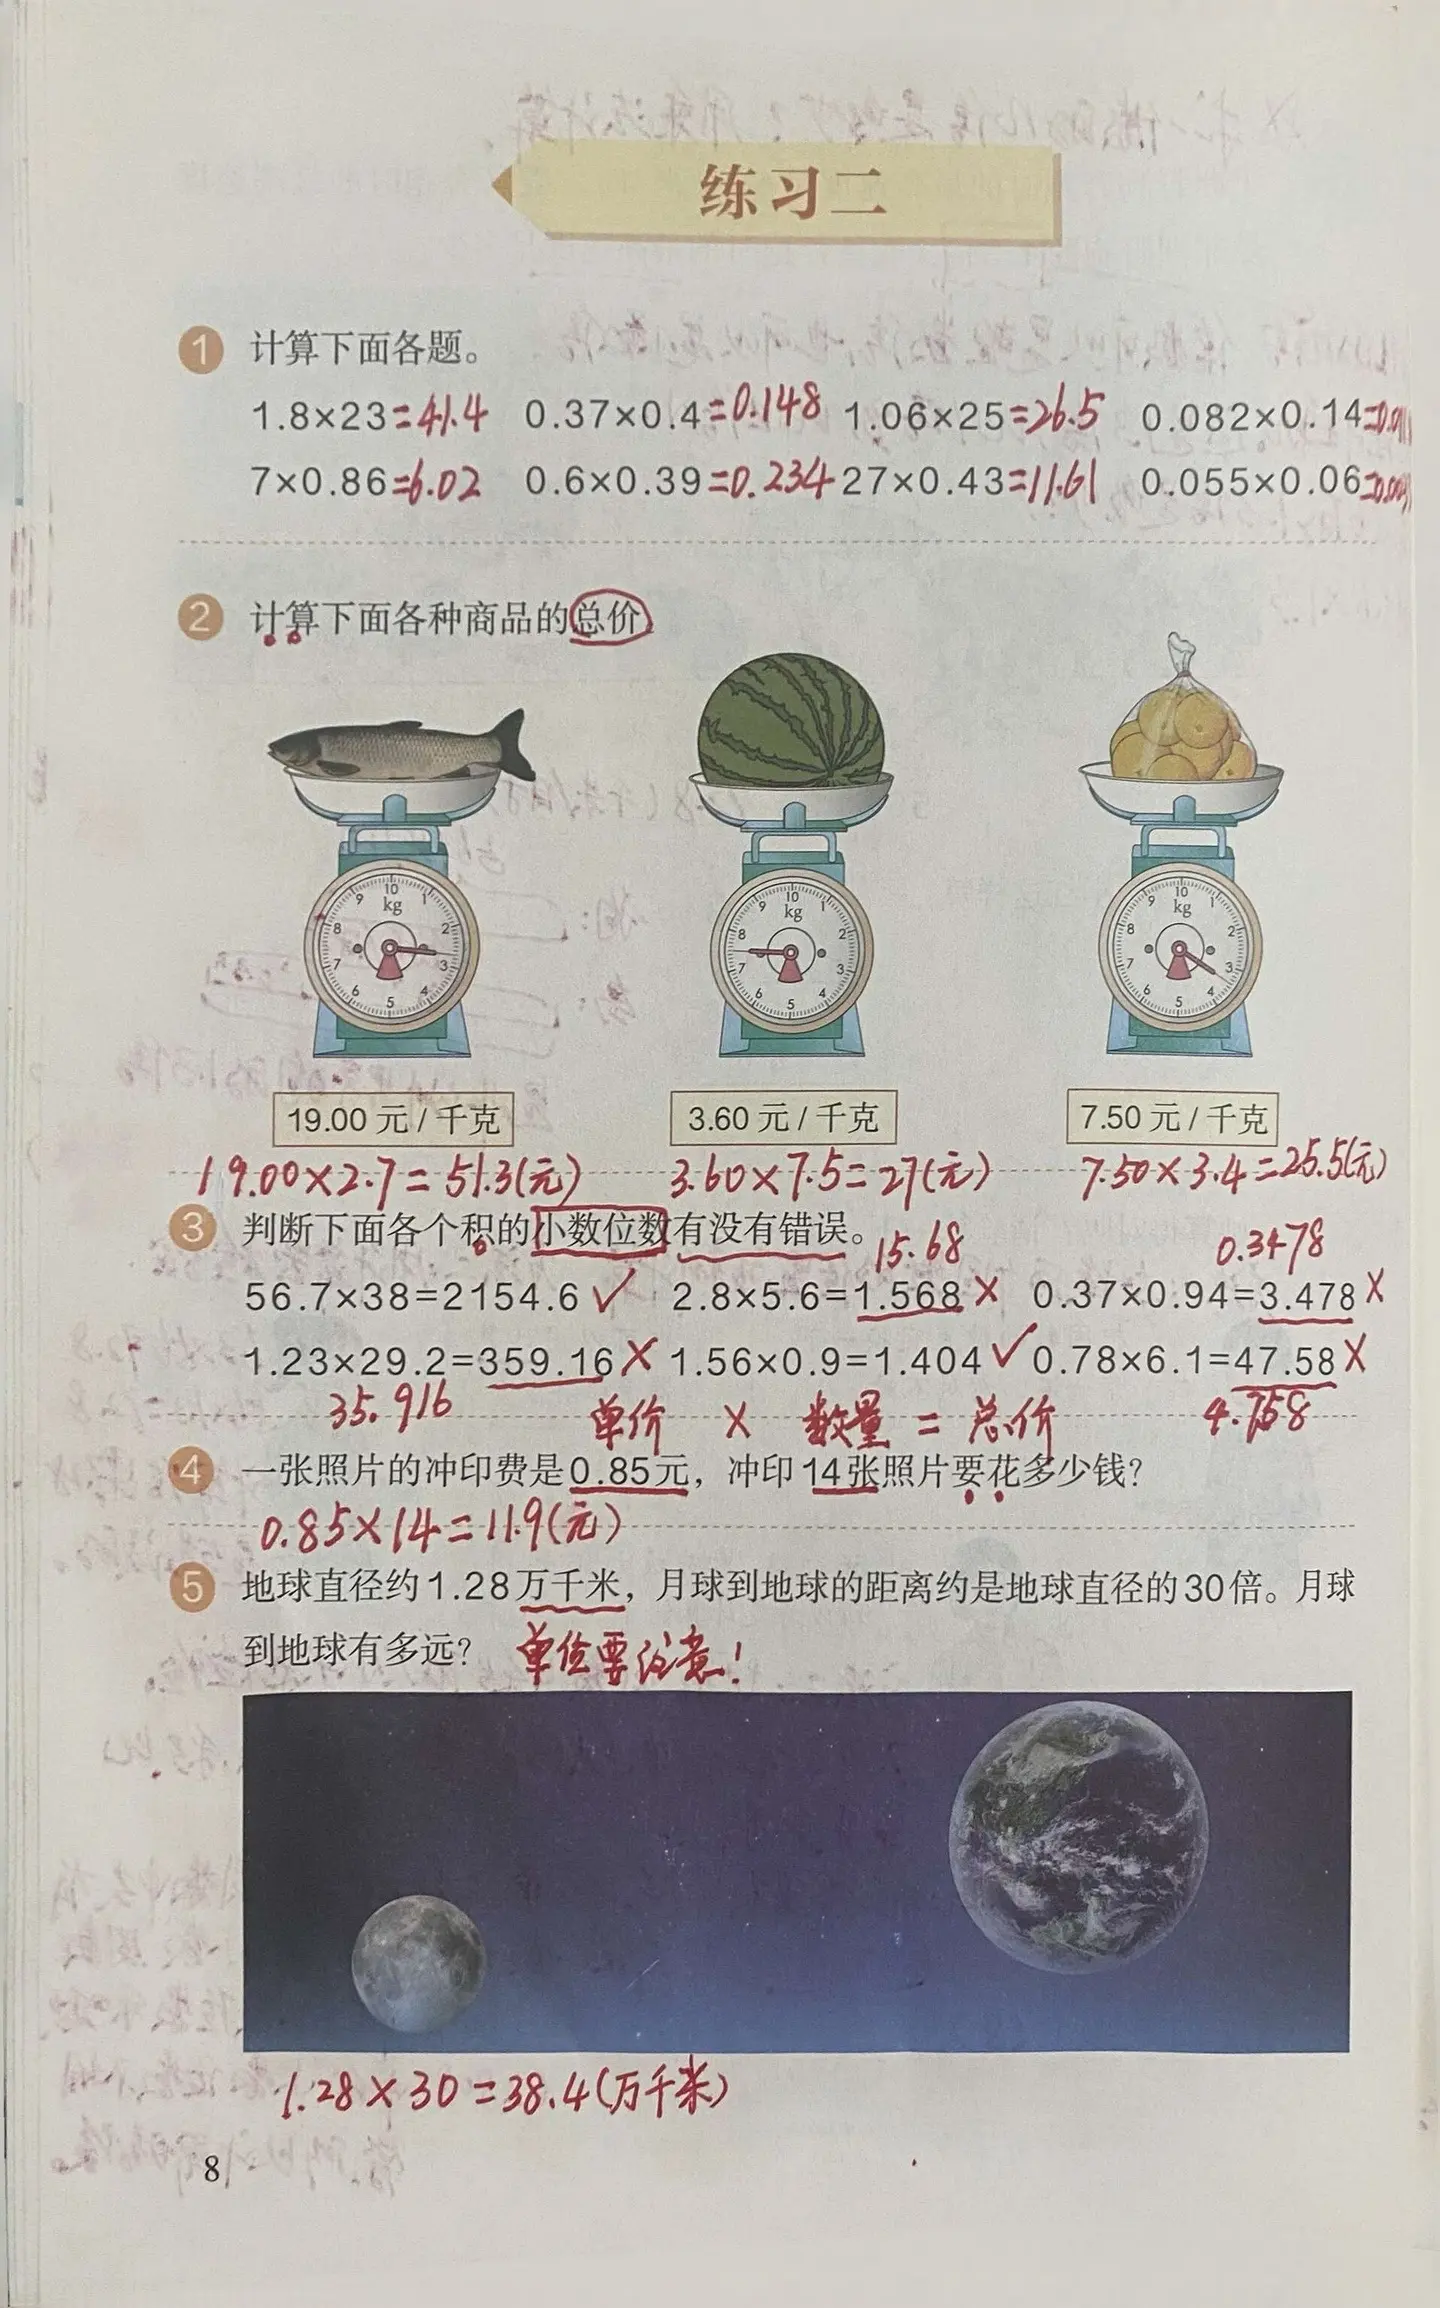 练习二
1 计算下面各题。
1.8×23=41.4 0.37×0.4=0.148 1.06×25=26.5 0.082×0.14=0.01
7×0.86=6.02 0.6×0.39=0.234 27×0.43=11.61 0.055×0.06=0.003
2 计算下面各种商品的总价
10 1 2 3 4 5 6 7 8 9 kg
10 1 2 3 4 5 6 7 8 9 kg
10 1 2 3 4 5 6 7 8 9 kg
19.00元/千克 3.60元/千克 7.50元/千克
19.00×2.7=51.3(元) 3.60×7.5=27(元) 7.50×3.4=25.5(元)
3 判断下面各个积的小数位数有没有错误。
15.68 0.3478
56.7×38=2154.6✓ 2.8×5.6=1.568× 0.37×0.94=3.478×
1.23×29.2=359.16× 1.56×0.9=1.404✓ 0.78×6.1=47.58×
35.916 单价 × 数量 = 总价 4.758
4 一张照片的冲印费是0.85元，冲印14张照片要花多少钱？
0.85×14=11.9(元)
5 地球直径约1.28万千米，月球到地球的距离约是地球直径的30倍。月球
到地球有多远？ 单位要注意！
1.28×30=38.4(万千米)
8